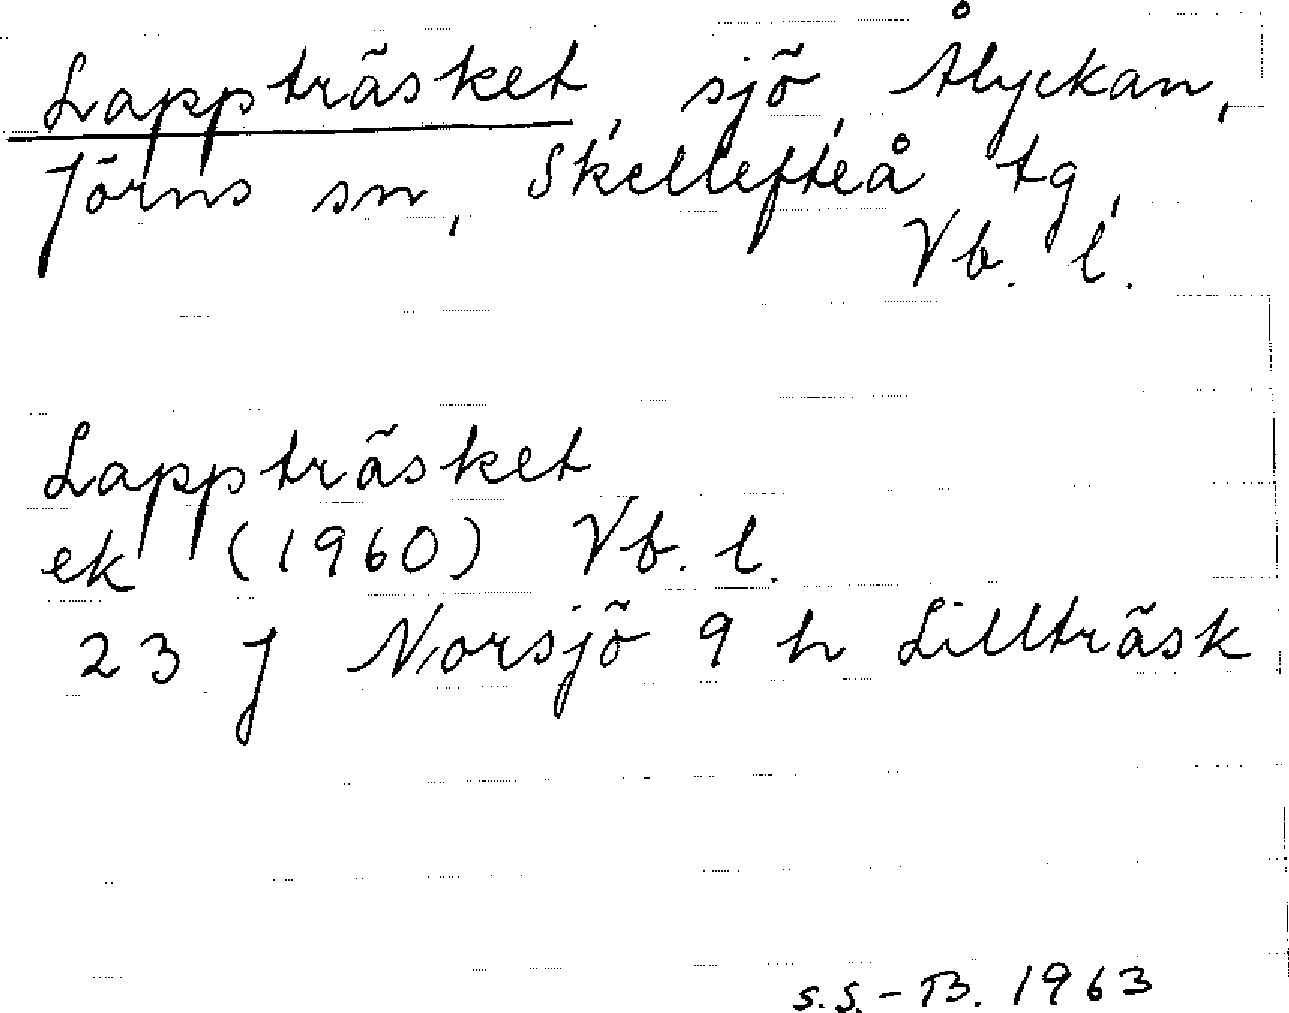 Lappträsket, sjö, Ålyckan,
Jörns sn, Skellefteå tg,
Vb. l.
Lappträsket
ek (1960) Vb. l.
23 J Norsjö 9 h Lillträsk
S.S.-B. 1963